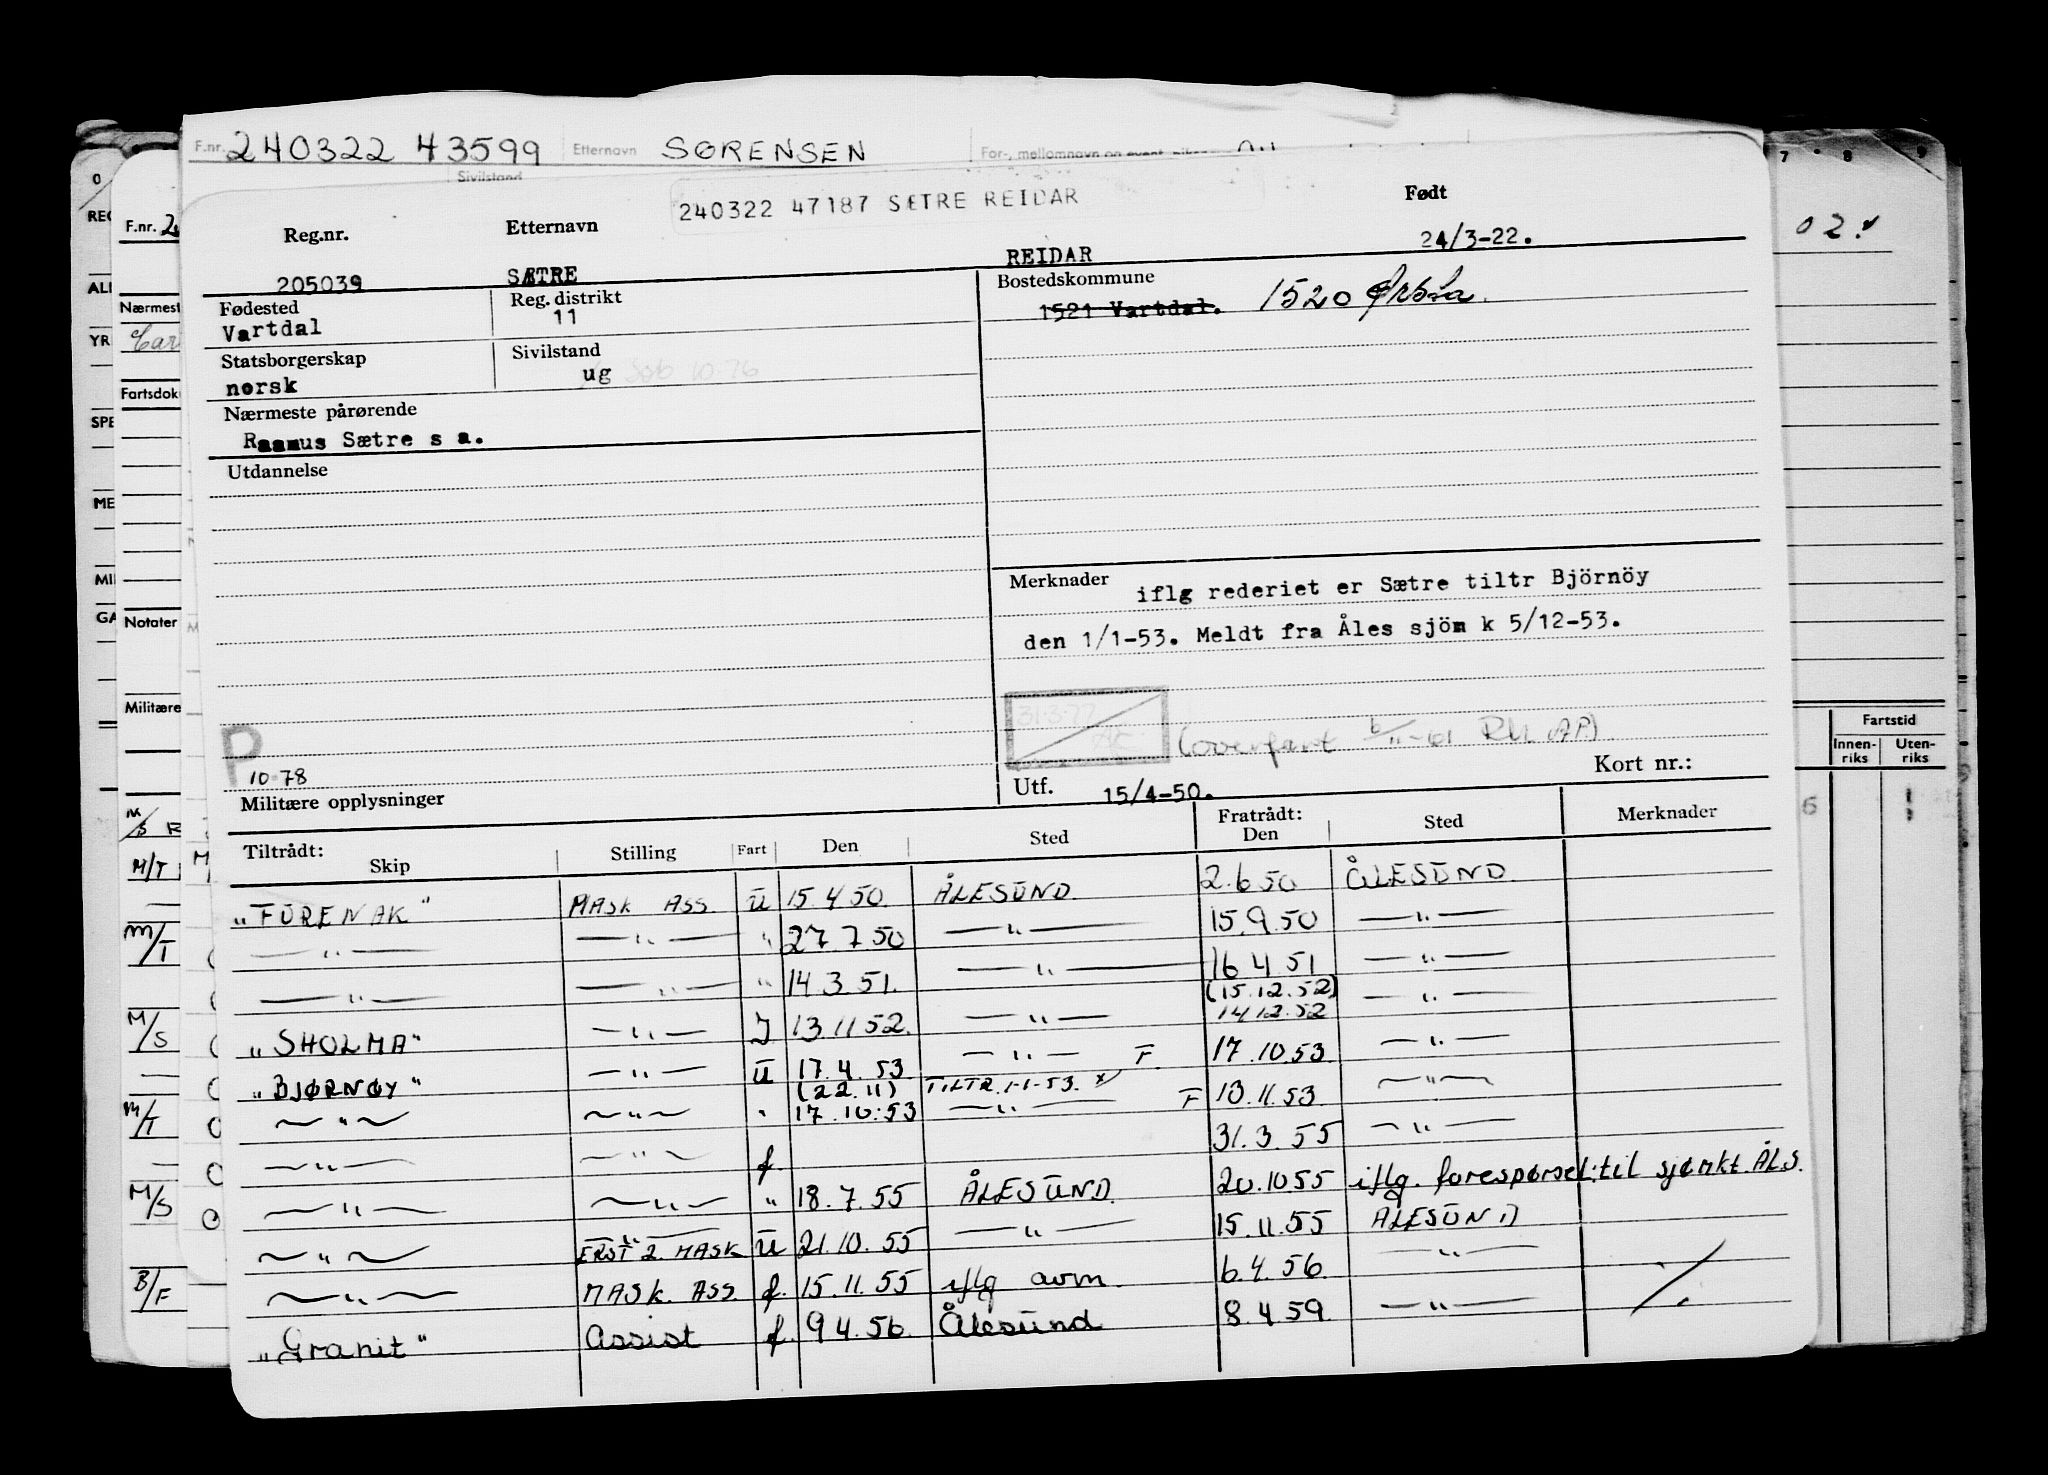 F.nr. 240322 43599 Etternavn SØRENSEN For-, mellomnavn og event.
Sivilstand
240322 47187 SÆTRE REIDAR
Født
Reg.nr. Etternavn
24/3-22.
205039 SÆTRE REIDAR
Fødested Reg. distrikt Bostedskommune
Vartdal 11 1521 Vartdal. 1520 Ørsta.
Statsborgerskap Sivilstand
norsk ug 10.76
Nærmeste pårørende
Rasmus Sætre s a.
Utdannelse
Merknader iflg rederiet er Sætre tiltr Björnöy
den 1/1-53. Meldt fra Åles sjöm k 5/12-53.
31.3.77
(overfart
P
10-78
Militære opplysninger
Utf. 15/4-50. Kort nr.:
Tiltrådt: Skip Stilling Fart Den Sted Fratrådt: Den Sted Merknader
"FURENAK" MASK ASS U 15.4.50. ÅLESUND. 2.6.50 ÅLESUND.
—"— —"— " 27.7.50 —"— 15.9.50 —"—
—"— —"— " 14.3.51. —"— 16.4.51 —"—
(15.12.52)
"SHOLMA" —"— I 13.11.52. —"— 14.12.52 —"—
"BJØRNØY" —"— U 17.4.53 —"— F. 17.10.53. —"—
(22.11) TILTR. 1-1-53. x)
—"— —"— " 17.10.53 —"— F 13.11.53 —"—
—"— —"— f 31.3.55 —"—
—"— —"— " 18.7.55 ÅLESUND. 20.10.55 iflg. forespørsel: til sjømkt. ÅLS.
—"— ERST 2. MASK U 21.10.55 —"— 15.11.55 ÅLESUND
—"— MASK. ASS. f. 15.11.55 iflg avm. 6.4.56. —"—
"Granit" Assist f. 9.4.56. Ålesund 8.4.59. —"—
F.nr. 2
Nærmest
Fartsdok
Notater
Militære
M/S
M/T
M/T
M/S
M/T
M/S
B/F
0
REG
ALI
YR
SPE
ME
MI
GA
7 8 9
02.
Fartstid
Innenriks Utenriks